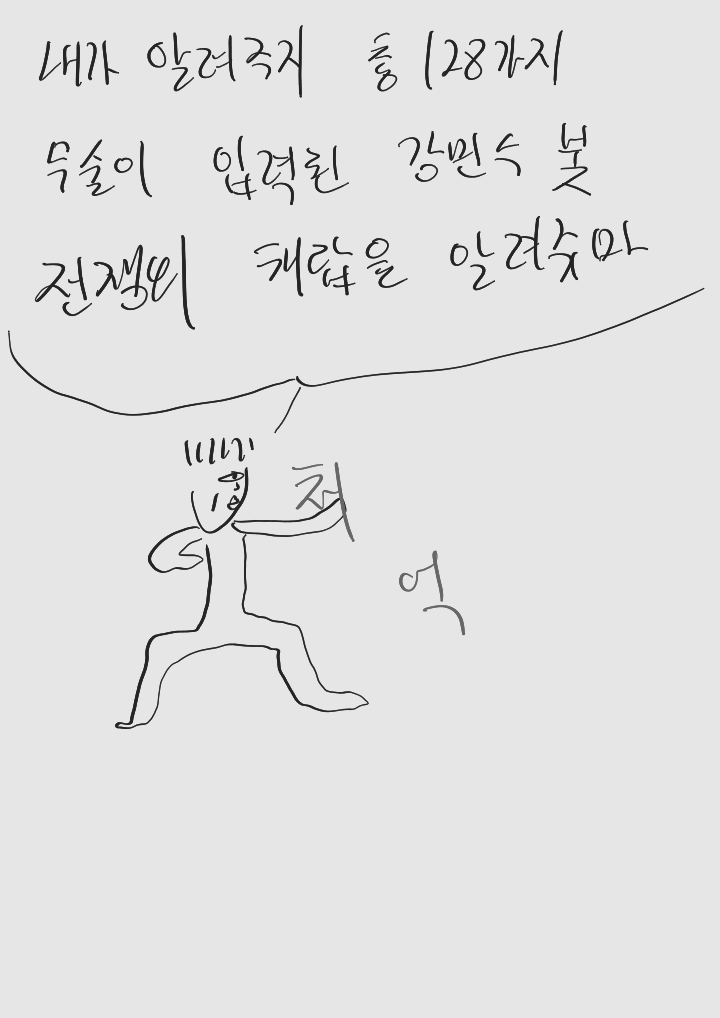 내가 알려주지 총 128가지
무술이 입력된 강민수 봇
전쟁의 해답을 알려줒마
척
억